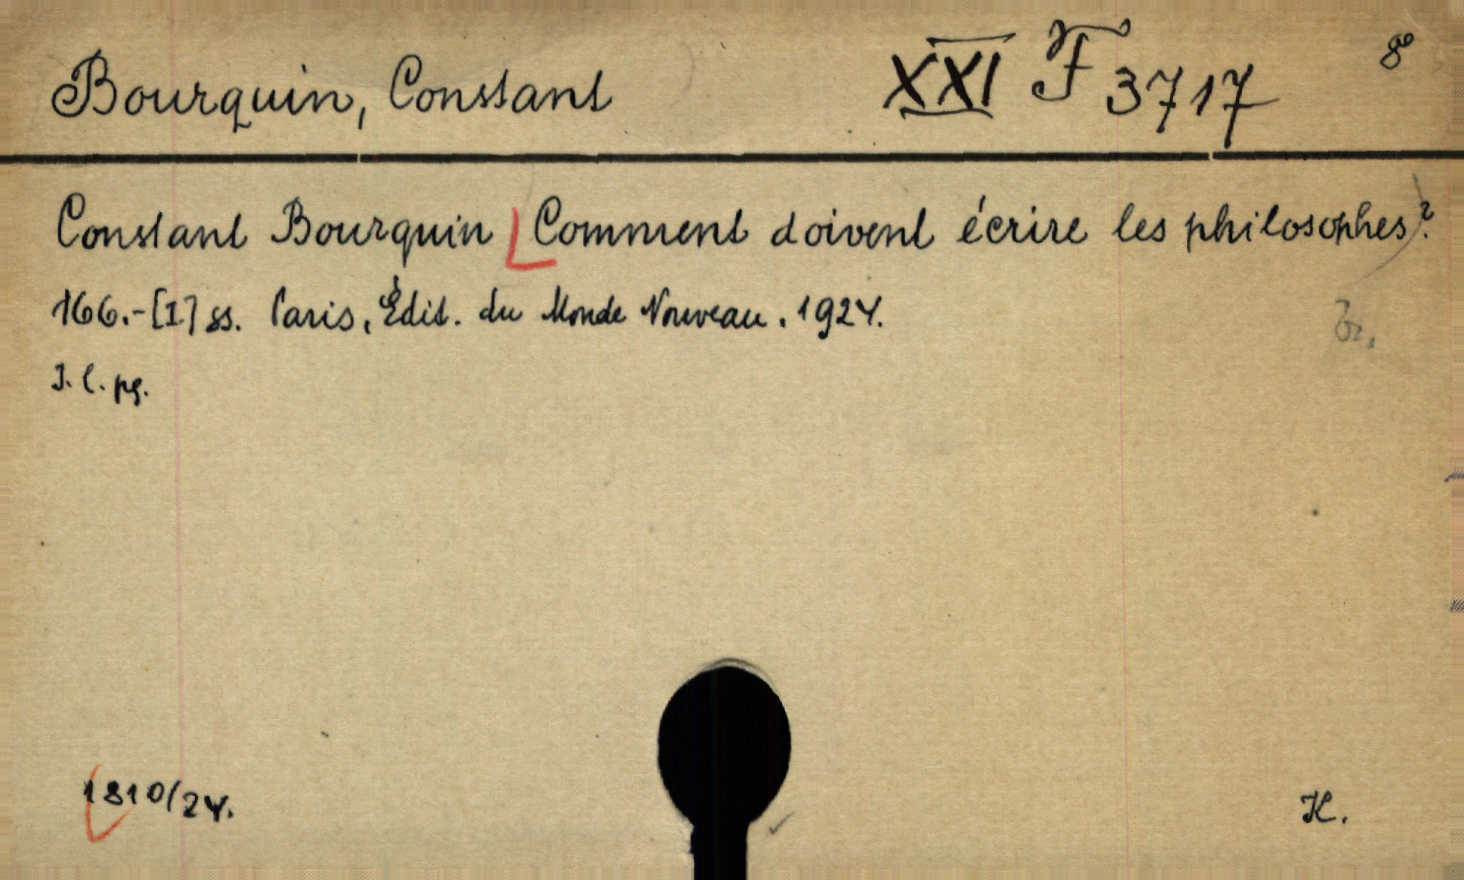 Bourquin, Constant XXI F 3717 8°
Constant Bourquin Comment doivent écrire les philosophes?
166.-[I] ss. Paris, Édit. du Monde Nouveau. 1924.
J. l. pg.
1810/24. H.